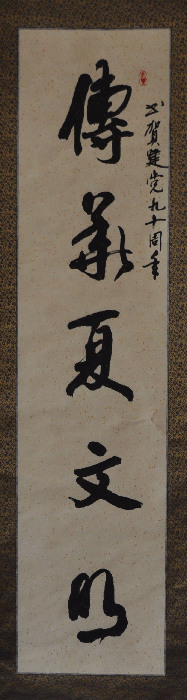 书贺建党九十周年
傳華夏文明